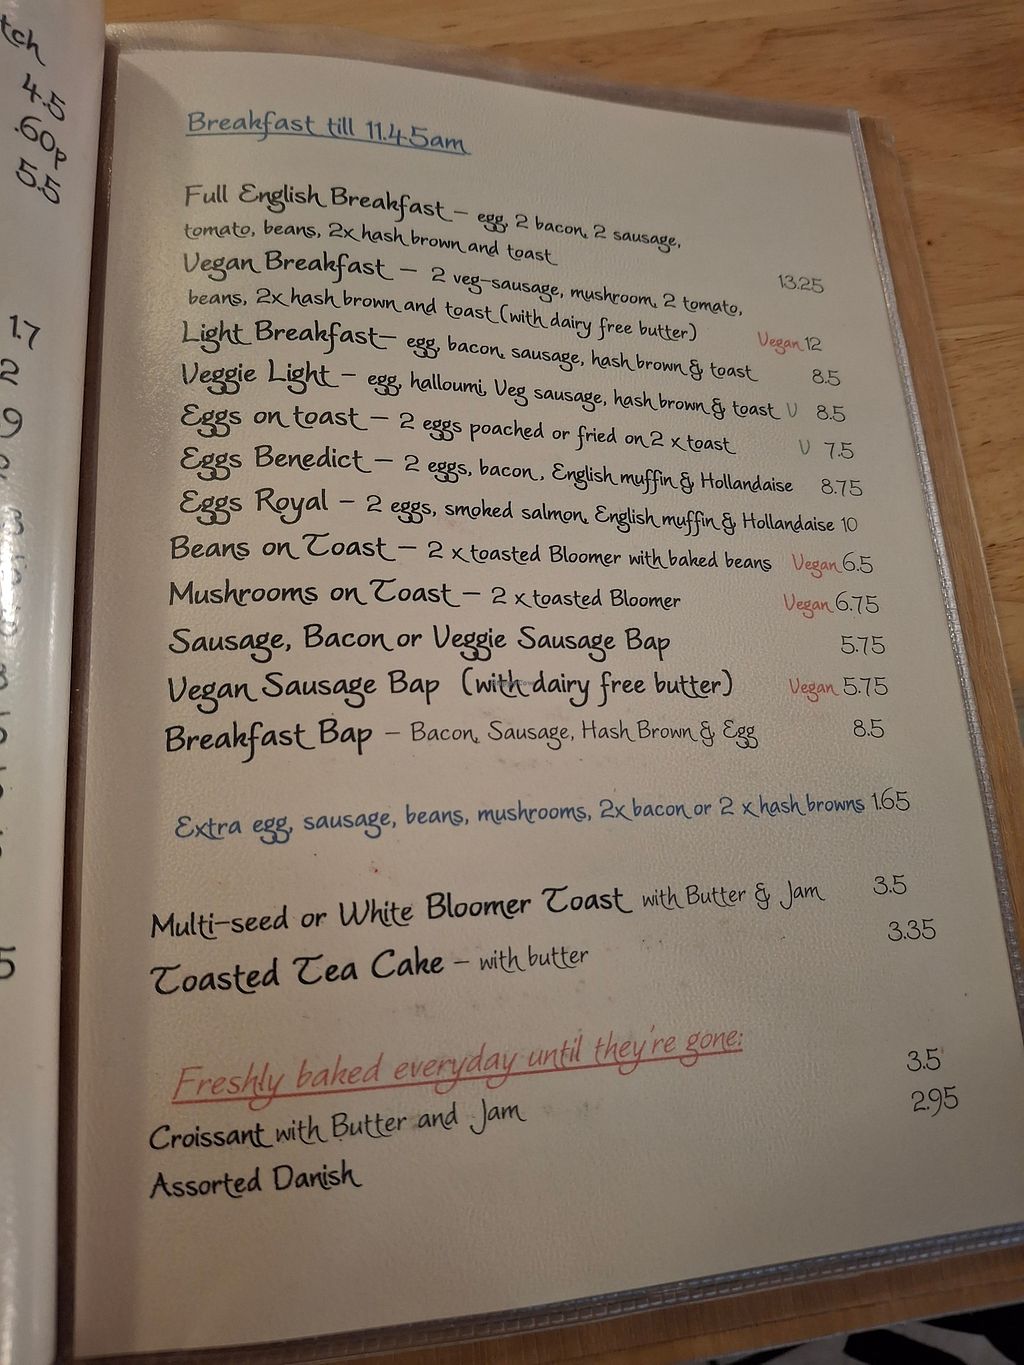 tch
4.5
.60p
5.5
1.7
2
9
5
Breakfast till 11.45am
Full English Breakfast – egg, 2 bacon, 2 sausage,
tomato, beans, 2x hash brown and toast 13.25
Vegan Breakfast – 2 veg-sausage, mushroom, 2 tomato,
beans, 2x hash brown and toast (with dairy free butter) Vegan 12
Light Breakfast– egg, bacon, sausage, hash brown & toast 8.5
Veggie Light – egg, halloumi, Veg sausage, hash brown & toast V 8.5
Eggs on toast – 2 eggs poached or fried on 2 x toast V 7.5
Eggs Benedict – 2 eggs, bacon, English muffin & Hollandaise 8.75
Eggs Royal – 2 eggs, smoked salmon, English muffin & Hollandaise 10
Beans on Toast – 2 x toasted Bloomer with baked beans Vegan 6.5
Mushrooms on Toast – 2 x toasted Bloomer Vegan 6.75
Sausage, Bacon or Veggie Sausage Bap 5.75
Vegan Sausage Bap (with dairy free butter) Vegan 5.75
Breakfast Bap – Bacon, Sausage, Hash Brown & Egg 8.5
Extra egg, sausage, beans, mushrooms, 2x bacon or 2 x hash browns 1.65
Multi-seed or White Bloomer Toast with Butter & Jam 3.5
Toasted Tea Cake – with butter 3.35
Freshly baked everyday until they're gone:
Croissant with Butter and Jam 3.5
Assorted Danish 2.95